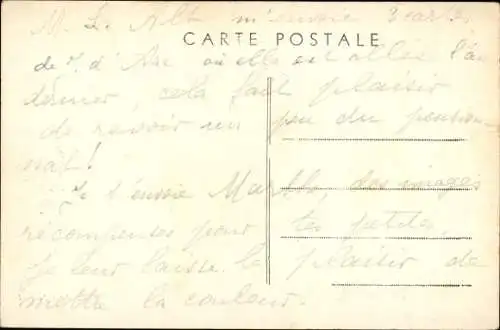 M. L. Alb m'envoie 3 cartes
CARTE POSTALE
de J. d'Arc où elle est allée l'an
dernier, cela fait plaisir
de revoir un peu du pension-
nat!
Je t'envoie Marthe, des images
récompenses pour tes petits,
je leur laisse le plaisir de
mettre la couleur.